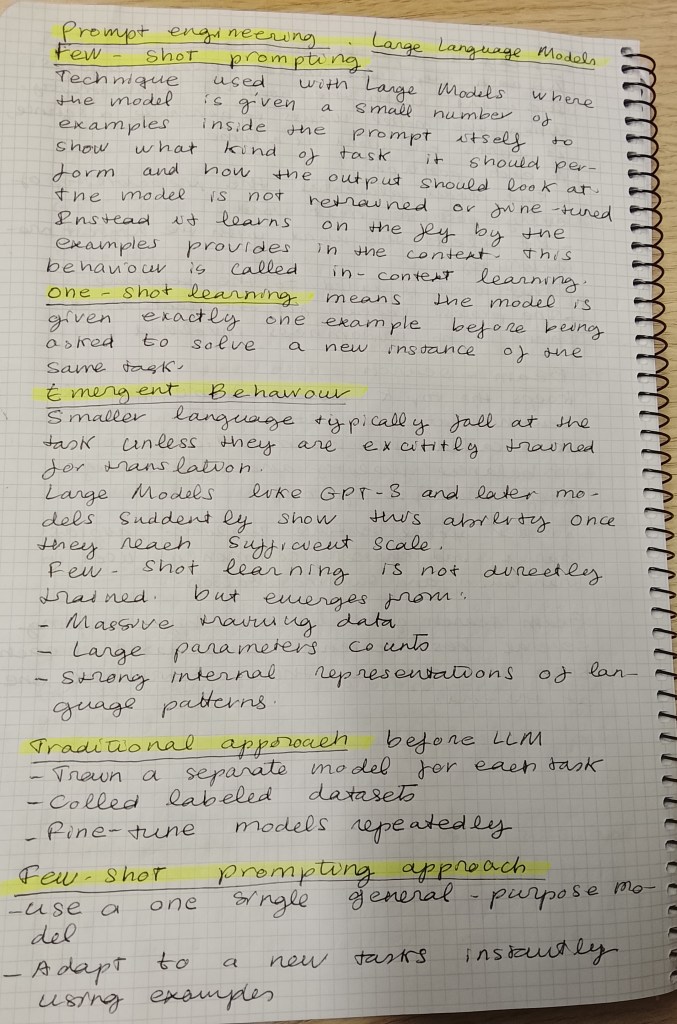 Prompt engineering. Large Language Models
Few-shot prompting
Technique used with Large Models where
the model is given a small number of
examples inside the prompt itself to
show what kind of task it should per-
form and how the output should look at.
The model is not retrained or fine-tuned
Instead it learns on the fly by the
examples provides in the context. This
behaviour is called in-context learning.
One-shot learning means the model is
given exactly one example before being
asked to solve a new instance of the
same task.
Emergent Behavour
Smaller language typically fall at the
task unless they are excititly trained
for translation.
Large Models like GPT-3 and later mo-
dels suddently show this ability once
they reach sufficient scale.
Few-shot learning is not directly
trained. but emerges from:
- Massive training data
- Large parameters counts
- Strong internal representations of lan-
guage patterns.
Traditional approach before LLM
- Train a separate model for each task
- Colled labeled datasets
- Fine-tune models repeatedly
Few-shot prompting approach
- use a one single general-purpose mo-
del
- Adapt to a new tasks instantly
using examples